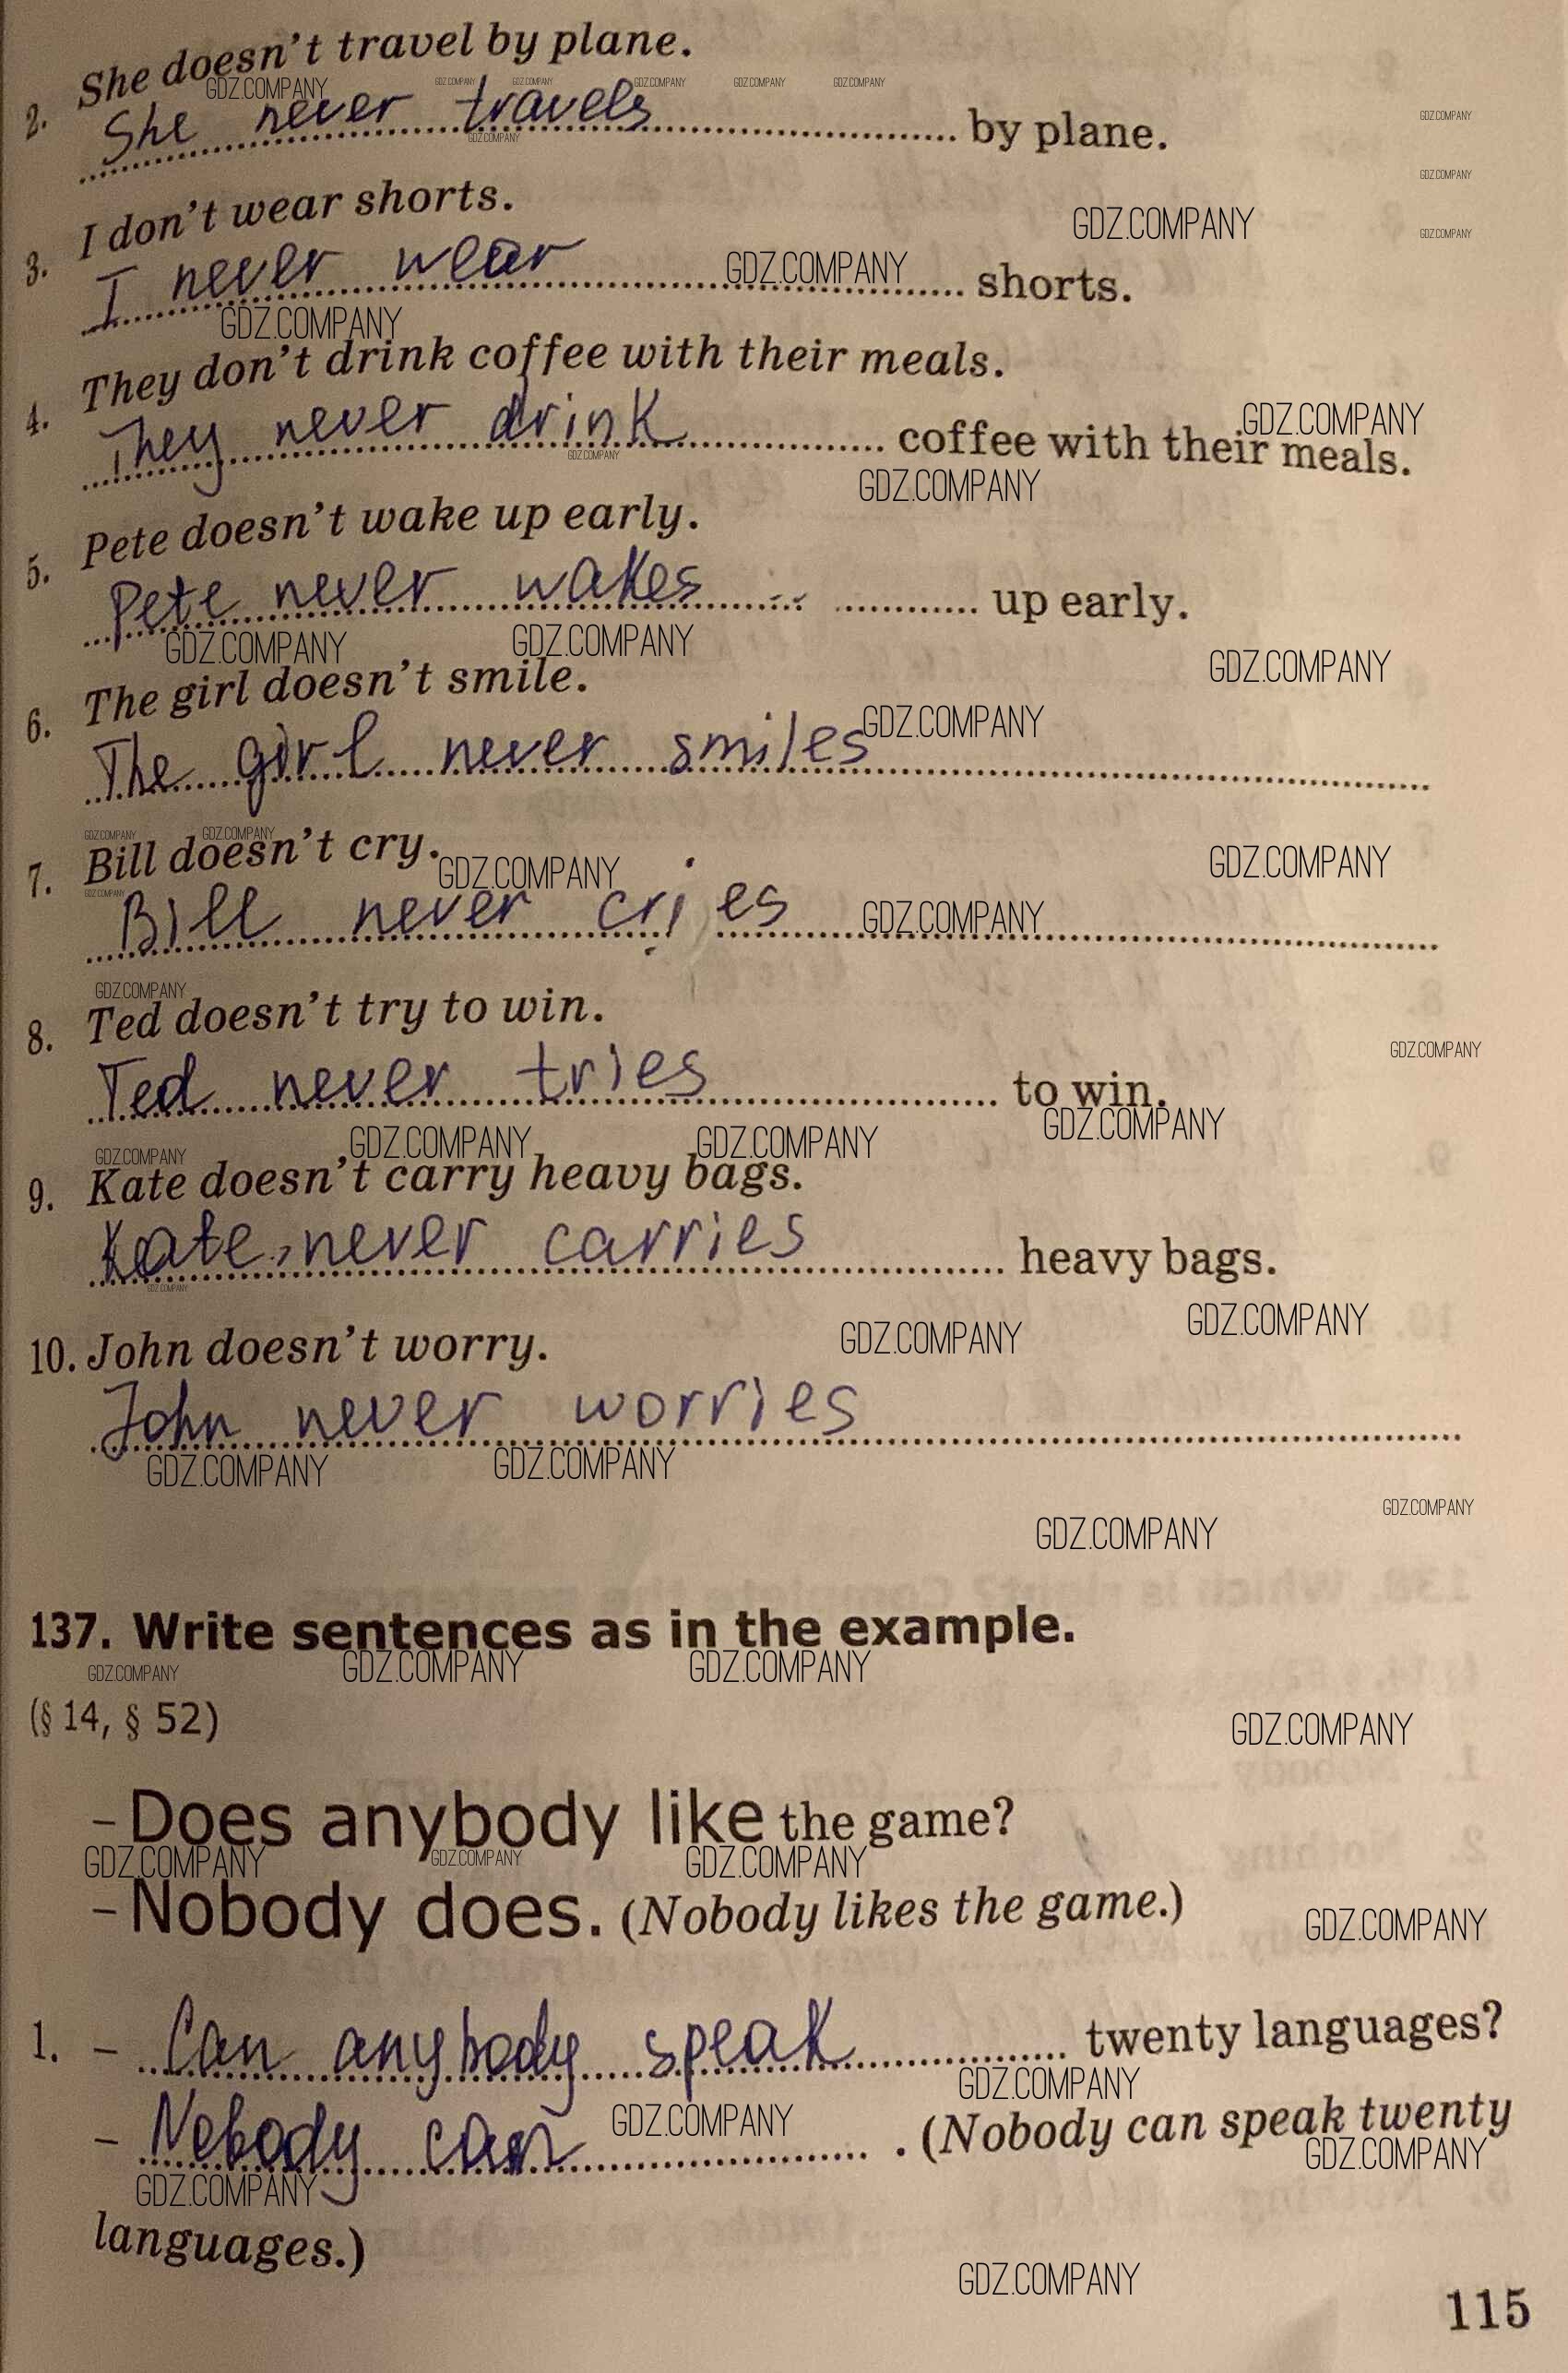 2. She doesn't travel by plane.
She never travels by plane.
3. I don't wear shorts.
I never wear shorts.
4. They don't drink coffee with their meals.
They never drink coffee with their meals.
5. Pete doesn't wake up early.
Pete never wakes up early.
6. The girl doesn't smile.
The girl never smiles
7. Bill doesn't cry.
Bill never cries
8. Ted doesn't try to win.
Ted never tries to win.
9. Kate doesn't carry heavy bags.
Kate never carries heavy bags.
10. John doesn't worry.
John never worries
137. Write sentences as in the example.
(§ 14, § 52)
– Does anybody like the game?
– Nobody does. (Nobody likes the game.)
1. – Can anybody speak twenty languages?
– Nobody can . (Nobody can speak twenty
languages.)
GDZ.COMPANY
115